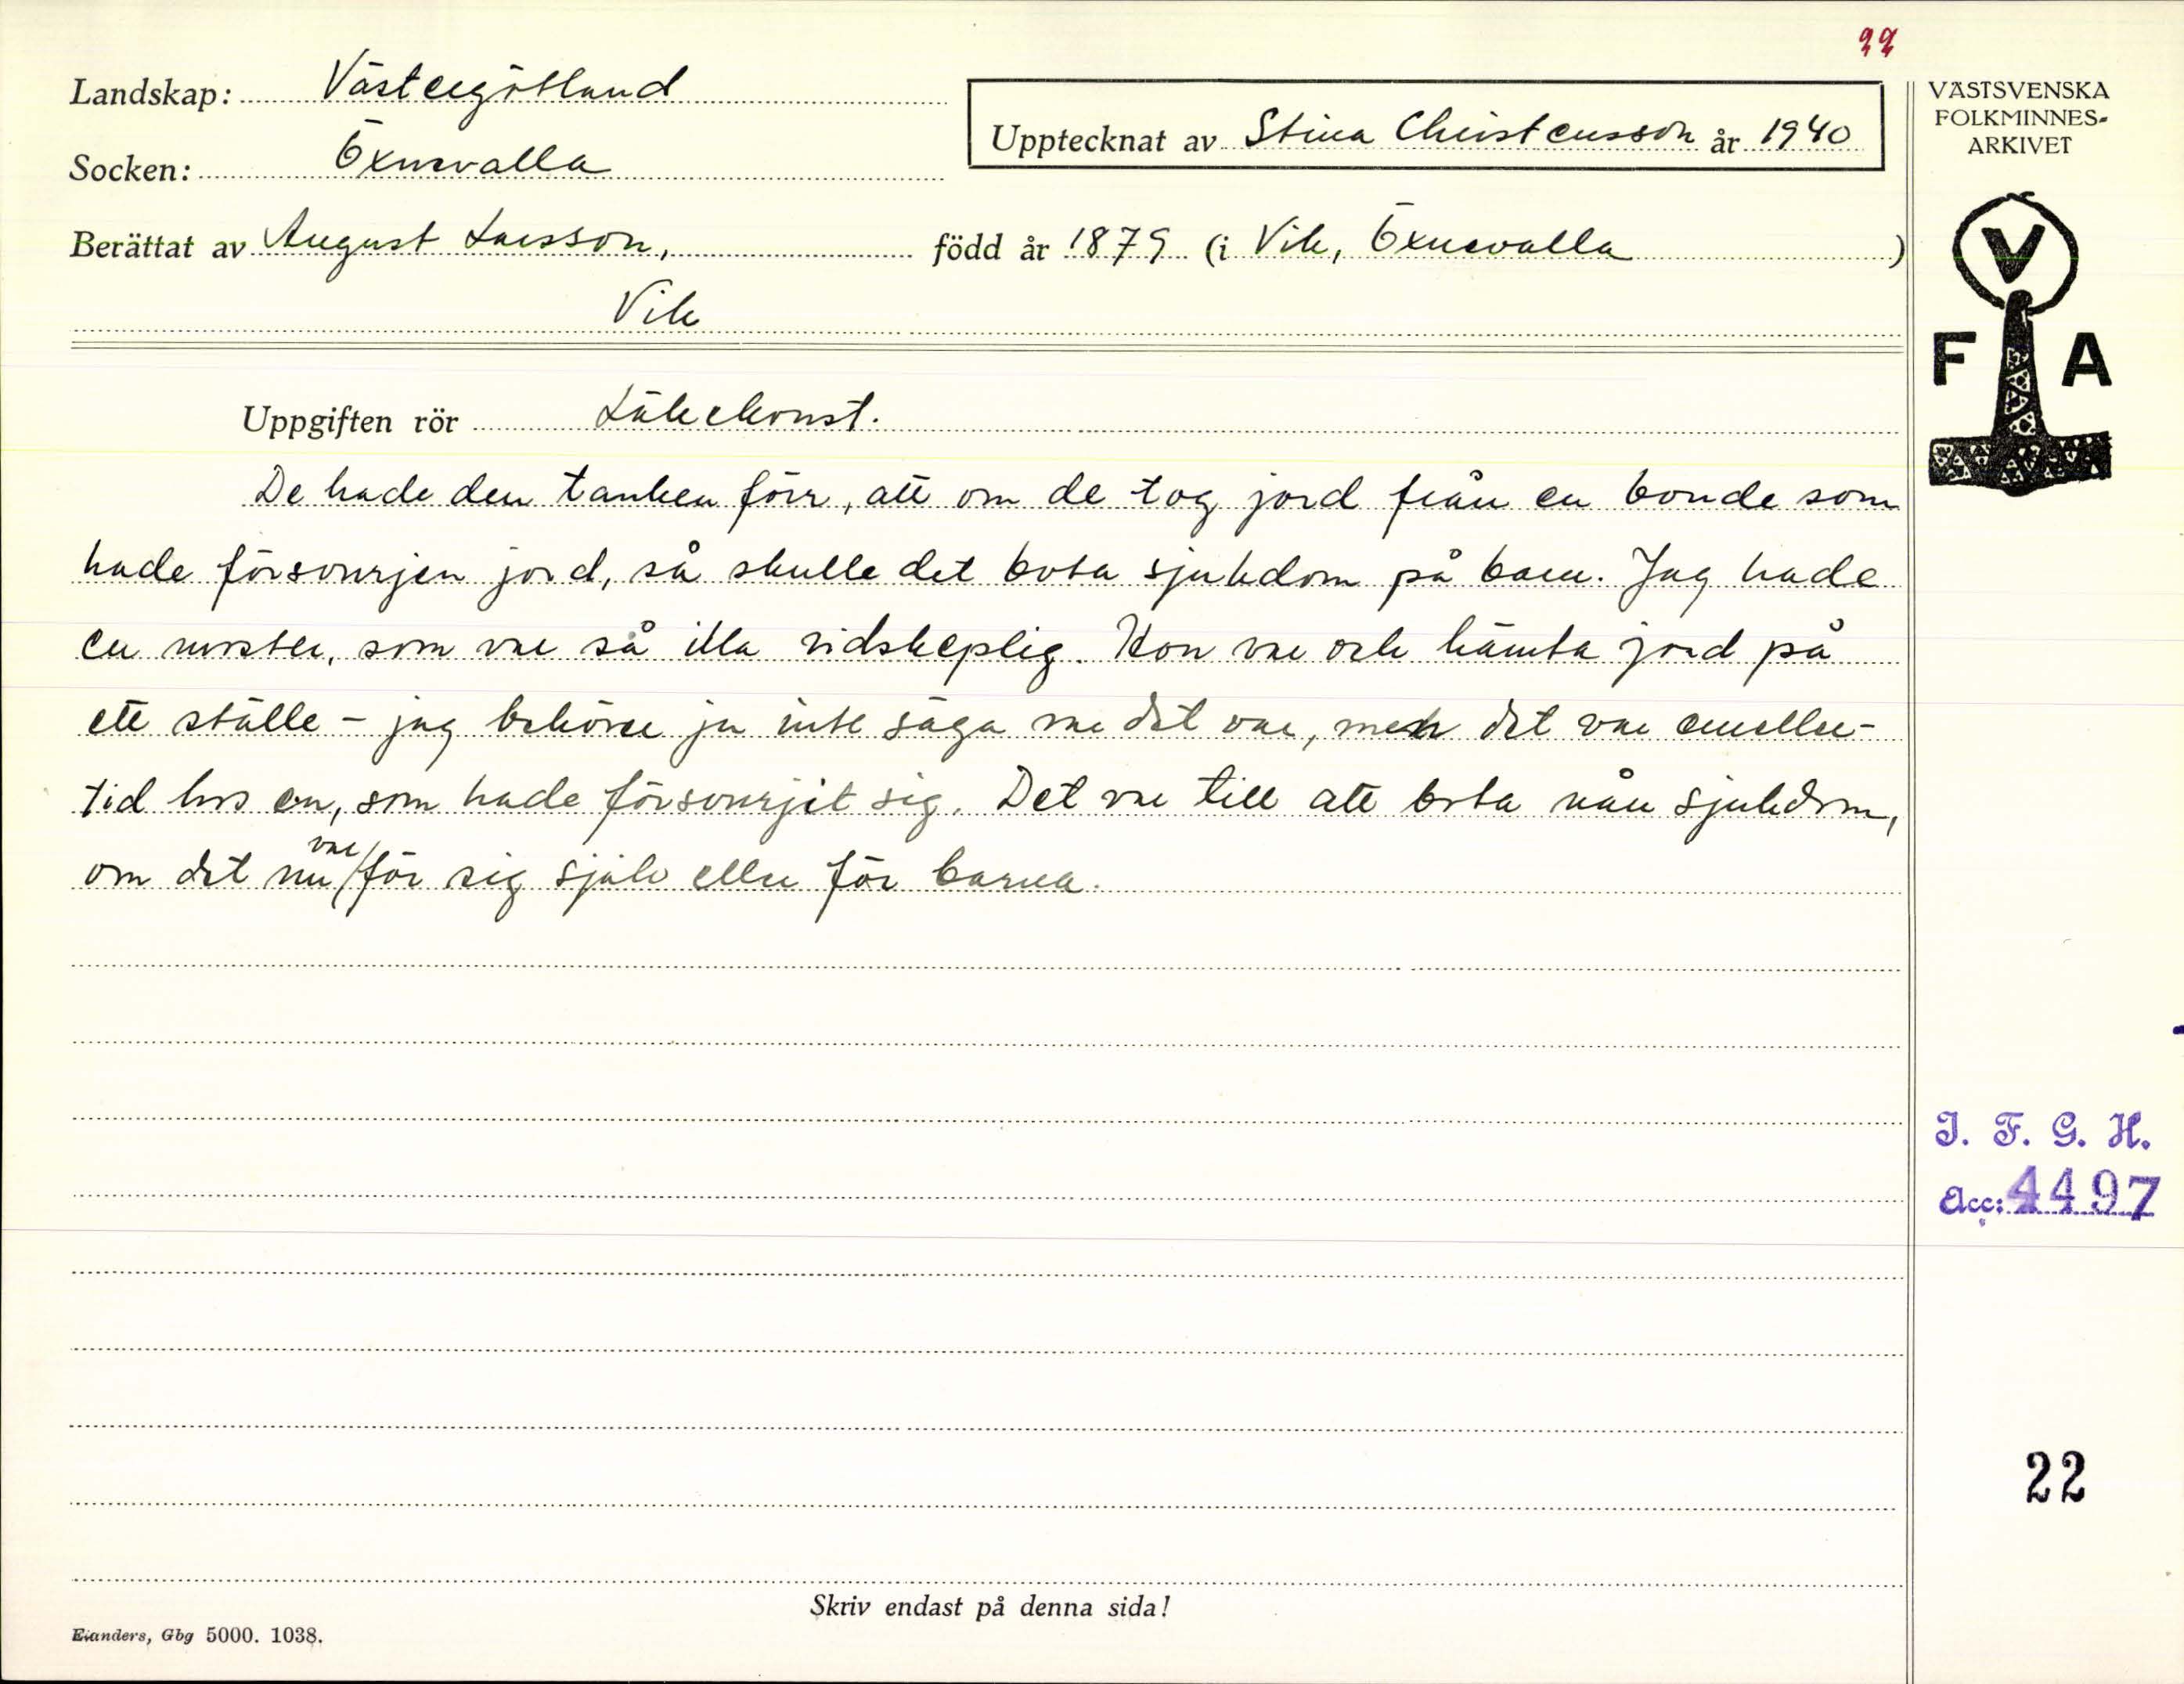 22
Landskap: Västergötland
Socken: Öxnevalla
Upptecknat av Stina Christensson år 1940
Berättat av August Larsson, född år 1879 (i Vik, Öxnevalla)
Vik
VÄSTSVENSKA
FOLKMINNES-
ARKIVET
V
F A
Uppgiften rör Läkekonst.
De hade den tanken förr, att om de tog jord från en bonde som
hade försvurjen jord, så skulle det bota sjukdom på barn. Jag hade
en moster, som var så illa vidskeplig. Hon var och hämta jord på
ett ställe - jag behöver ju inte säga var det var, men det var emeller-
tid hos en, som hade försvurjit sig. Det var till att bota nån sjukdom,
om det nu var för sig själv eller för barna.
I. F. G. H.
Acc: 4497
22
Skriv endast på denna sida!
Elanders, Gbg 5000. 1038.